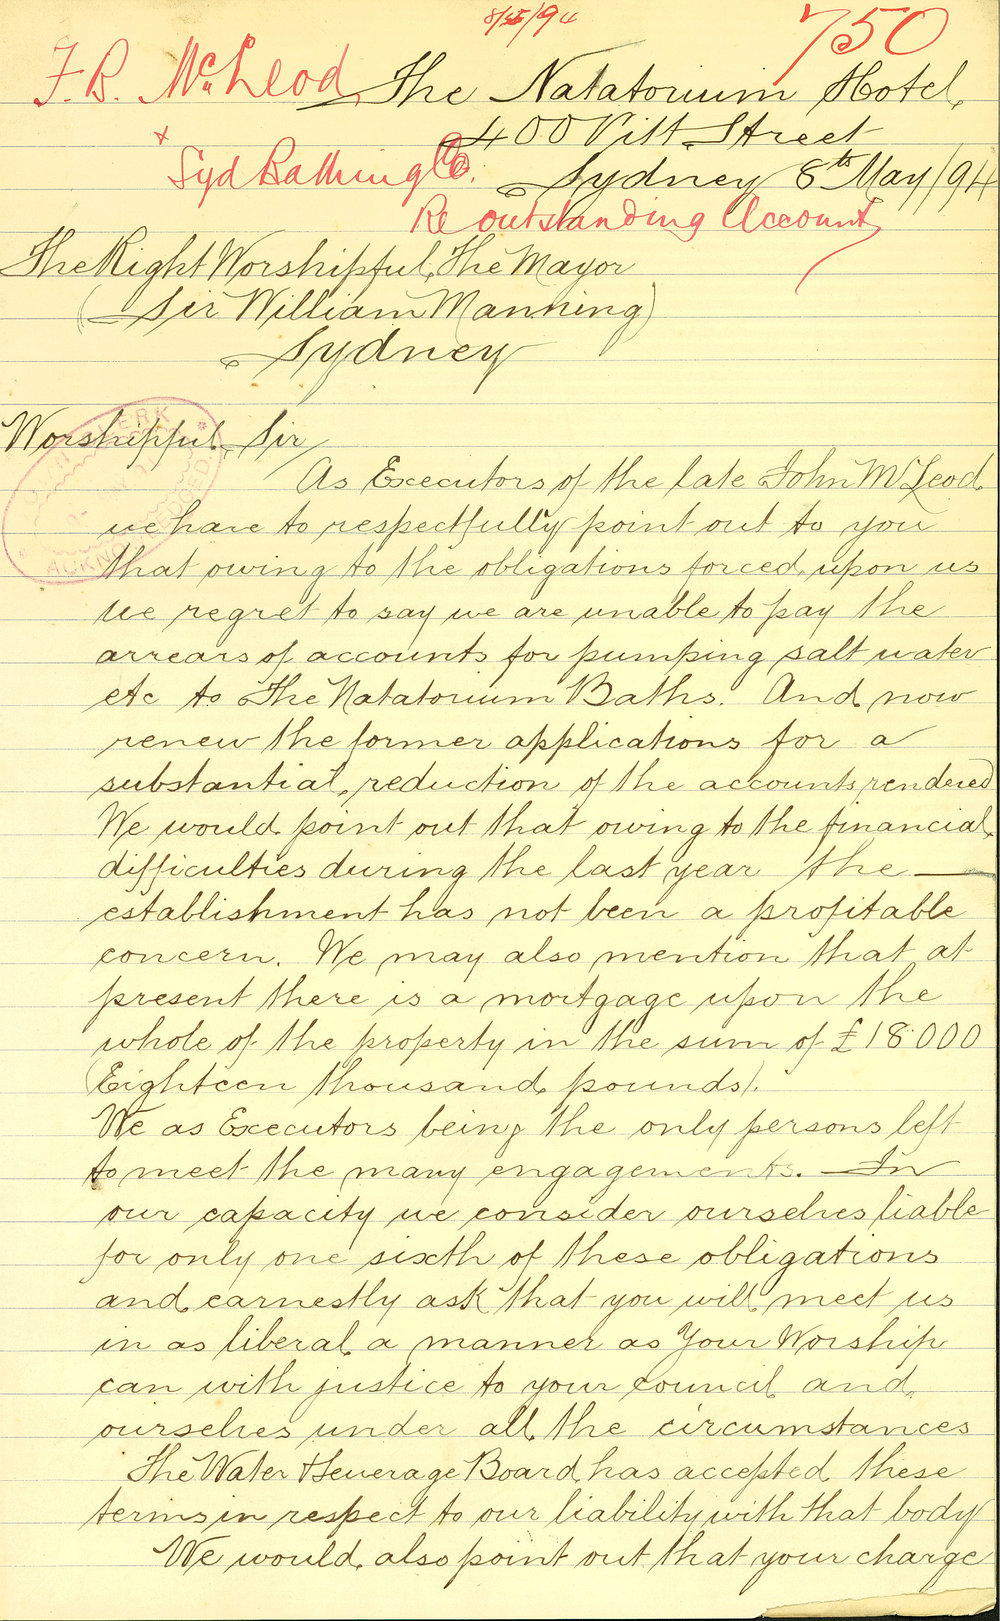 8/5/94
750
F. B. McLeod
The Natatorium Hotel,
400 Pitt Street
x
Syd Bathing Co.
Sydney 8th May/94
Re outstanding Account
The Right Worshipful, The Mayor
(Sir William Manning)
Sydney
Worshipful, Sir
As Executors of the late John McLeod
we have to respectfully point out to you
that owing to the obligations forced upon us
we regret to say we are unable to pay the
arrears of accounts for pumping salt water
etc to The Natatorium Baths. And now
renew the former applications for a
substantial reduction of the accounts rendered
We would point out that owing to the financial
difficulties during the last year the —
establishment has not been a profitable
concern. We may also mention that at
present there is a mortgage upon the
whole of the property in the sum of £18.000
(Eighteen thousand pounds).
We as Executors being the only persons left
to meet the many engagements. — In
our capacity we consider ourselves liable
for only one sixth of these obligations
and earnestly ask that you will meet us
in as liberal a manner as Your Worship
can with justice to your council and
ourselves under all the circumstances
The Water & Sewerage Board has accepted these
terms in respect to our liability with that body
We would also point out that your charge